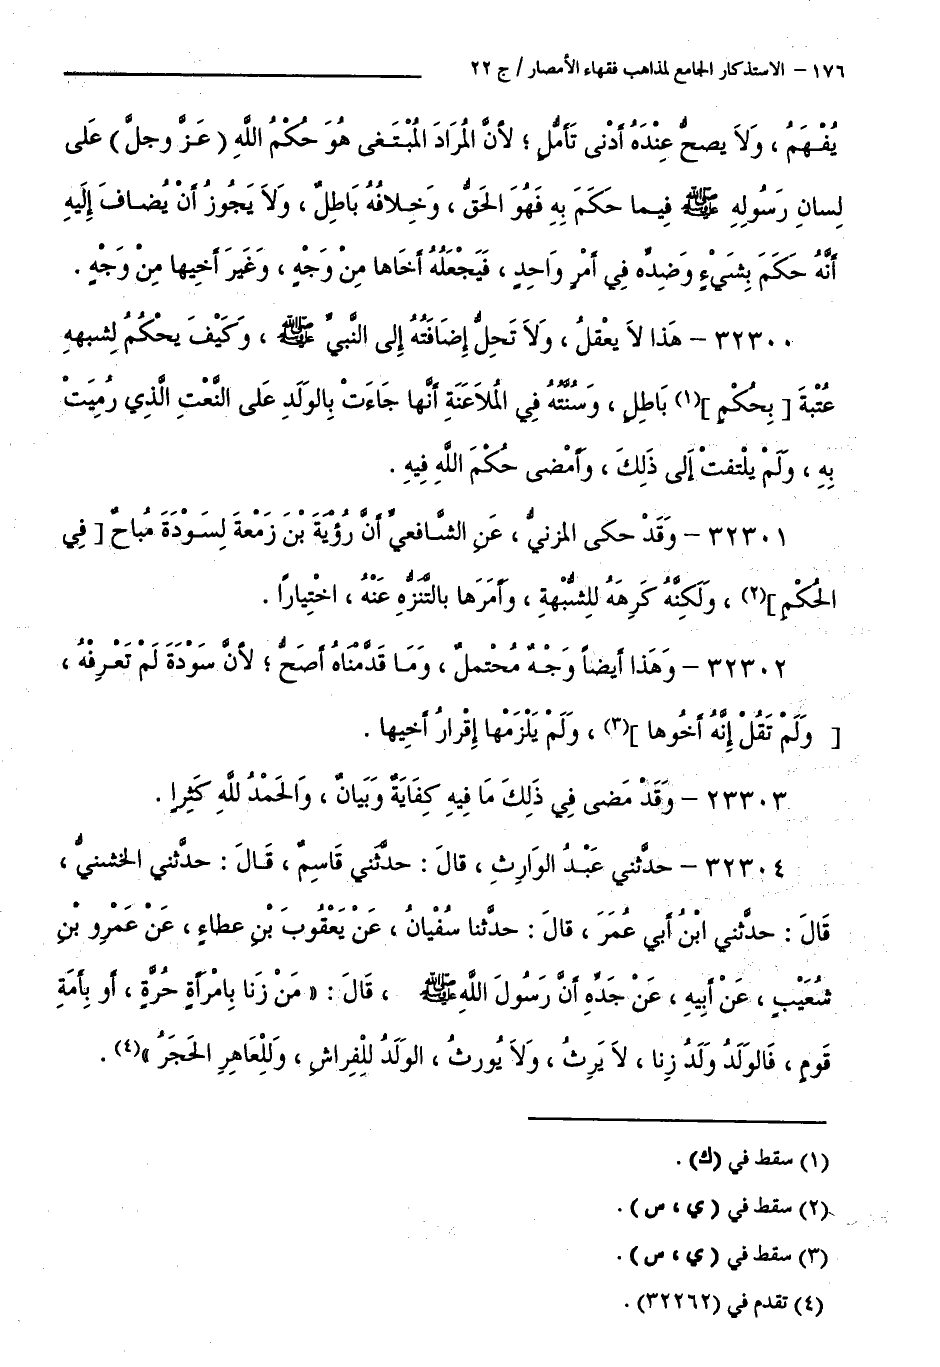 ١٧٦ – الاستذكار الجامع لمذاهب فقهاء الأمصار / ج ٢٢
يُفْهَمُ ، وَلاَ يصحُّ عِنْدَهُ أدْنى تَأمُّلٍ ؛ لأنَّ المُرَادَ المُبْتَغى هُوَ حُكْمُ اللَّهِ ( عَزَّ وجلَّ ) عَلى
لِسانِ رَسُولِهِ ﷺ فِيما حكَمَ بِهِ فَهُوَ الحَقُّ ، وَخِلافُهُ بَاطِلٌ ، وَلاَ يَجُوزُ أنْ يُضافَ إِلَيهِ
أنَّهُ حكَمَ بِشَيْءٍ وَضِدِّه فِي أمْرٍ وَاحِدٍ ، فَيَجْعَلُهُ أخَاها مِنْ وَجْهٍ ، وَغَيرَ أخِيها مِنْ وَجْهٍ .
٣٢٣٠٠ – هَذا لاَ يعْقلُ ، وَلاَ تَحلُّ إِضَافَتُهُ إِلى النَّبيِّ ﷺ ، وَكَيْفَ يحْكُمُ لِشبههِ
عُتْبةَ [ بِحُكْمٍ ](١) بَاطِلٍ ، وَسُنَّتُهُ فِي المُلاَعَنَةِ أنَّها جاءَتْ بِالوَلَدِ عَلى النَّعْتِ الَّذِي رُمِيَتْ
بِهِ ، وَلَمْ يلْتفتْ إَلى ذَلِكَ ، وَأمْضى حُكْمَ اللَّهِ فِيهِ .
٣٢٣٠١ – وَقَدْ حكى المزنيُّ ، عَنِ الشَّافعيِّ أنَّ رُؤْيَةَ بْنَ زمْعةَ لِسَوْدَةَ مُباحٌ [ فِي
الحُكْمِ ](٢) ، ولَكِنَّهُ كَرِهَهُ لِلشُّبْهةِ ، وأمَرَها بالتَّنَزُّهِ عَنْهُ ، اخْتِيارًا .
٣٢٣٠٢ – وَهَذا أيضاً وَجْهٌ مُحْتملٌ ، وَمَا قَدَّمْنَاهُ أصَحُّ ؛ لأنَّ سَوْدَةَ لَمْ تَعْرِفْهُ ،
[ وَلَمْ تَقُلْ إِنَّهُ أخُوها ](٣) ، وَلَمْ يَلْزَمْها إِقْرارُ أخِيها .
٢٣٣٠٣ – وَقَدْ مَضى فِي ذَلِكَ مَا فِيهِ كِفَايَةٌ وَبَيانٌ ، وَالحَمْدُ للَّهِ كَثِراٍ .
٣٢٣٠٤ – حدَّثني عَبْدُ الوَارِثِ ، قالَ : حدَّثَني قَاسِمٌ ، قَالَ : حدَّثني الخشنيُّ ،
قَالَ : حدَّثَني ابْنُ أبي عُمَرَ ، قالَ : حدَّثنا سفْيَانُ ، عَنْ يَعْقُوبَ بْنِ عطاءٍ ، عَنْ عَمْرِو بْنِ
شُعَيْبٍ ، عَنْ أبِيهِ ، عَنْ جَدِّهِ أنَّ رَسُولَ اللَّهِ ﷺ ، قَالَ : « مَنْ زَنَا بِامْرَأةٍ حُرَّةٍ ، أو بِأمَةِ
قَومٍ ، فَالوَلَدُ وَلَدُ زِنا ، لاَ يَرِثُ ، وَلاَ يُورثُ ، الولَدُ لِلْفِراشِ ، وَلِلْعَاهِرِ الحَجَرُ »(٤) .
(١) سقط في (ك) .
(٢) سقط في ( ي ، س ) .
(٣) سقط في ( ي ، س ) .
(٤) تقدم في (٣٢٢٦٢) .